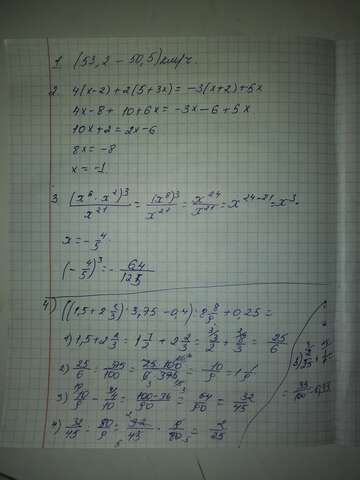 1. (53,2 - 50,5) км/ч.
2. 4(x-2)+2(5+3x) = -3(x+2)+5x
4x-8+10+6x = -3x-6+5x
10x+2 = 2x-6
8x = -8
x = -1
3. (x⁶·x²)³/x²¹ = (x⁸)³/x²¹ = x²⁴/x²¹ = x²⁴⁻²¹ = x³
x = -4/5
(-4/5)³ = -64/125
4) ((1,5+2 2/3) : 3,75 - 0,4) : 2 8/9 + 0,25 =
1) 1,5+2 2/3 = 1 1/2 + 2 2/3 = 3/2 + 8/3 = 25/6
2) 25/6 : 375/100 = 25·100/6·375 = 10/9 = 1 1/9
3) 10/9 - 4/10 = 100-36/90 = 64/90 = 32/45